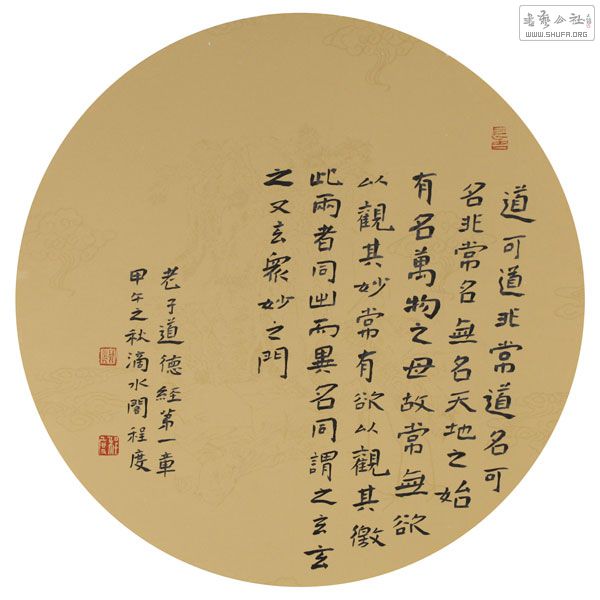 道可道非常道名可
名非常名無名天地之始
有名萬物之母故常無欲
以觀其妙常有欲以觀其徼
此兩者同出而異名同謂之玄玄
之又玄衆妙之門
老子道德經第一章
甲午之秋滴水閣程度
WWW.SHUFA.ORG